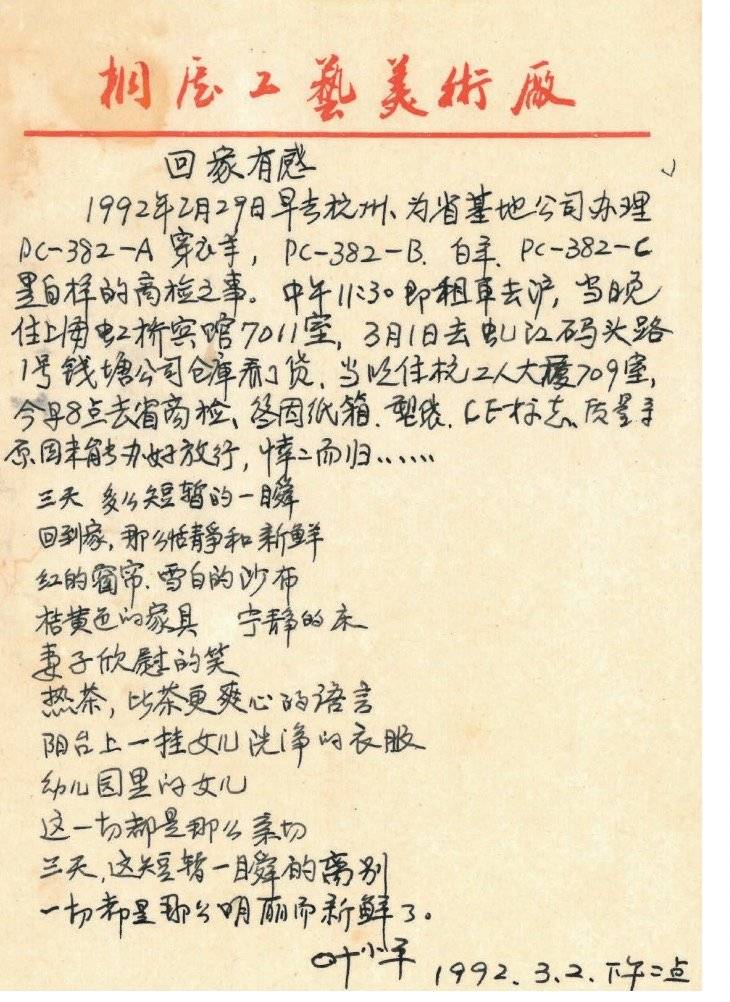 桐庐工藝美術廠
回家有感
1992年2月29日早去杭州、为省基地公司办理
PC-382-A 穿衣羊, PC-382-B. 白羊. PC-382-C
黑白样的商检之事。中午11:30即租車去沪,当晚
住上海虹桥宾馆7011室, 3月1日去虬江码头路
1号钱塘公司仓库看了货. 当晚住杭工人大厦709室,
今早8点去省商检、终因纸箱.塑袋.CE标志.质量等
原因未能办好放行, 悻〻而归......
三天 多么短暂的一瞬
回到家,那么恬静和新鲜
红的窗帘.雪白的沙布
桔黄色的家具 宁静的床
妻子欣慰的笑
热茶, 比茶更爽心的语言
阳台上一挂女儿洗净的衣服
幼儿园里的女儿
这一切都是那么亲切
三天,这短暂一瞬的离别
一切都是那么明丽而新鲜了。
叶小平 1992.3.2.下午二点